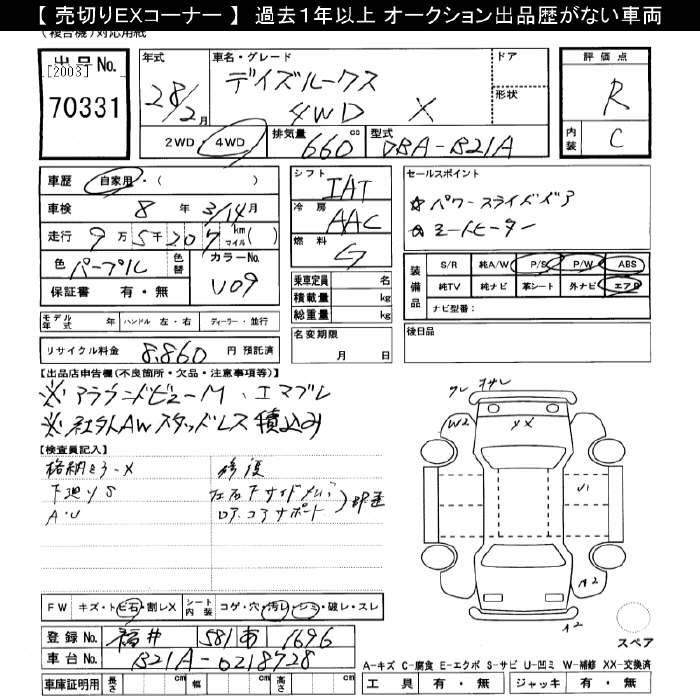 【 売切りEXコーナー 】 過去1年以上 オークション出品歴がない車両
(複合機)対応用紙
出品No.
[2003]
70331
年式
28/2月
車名・グレード
デイズルークス
4WD X
ドア
形状
評価点
R
内装
C
2WD・4WD
排気量 660 cc
型式 DBA-B21A
車歴 自家用・( )
車検 8 年 3/14 月
走行 9万5千207 km マイル( )
色 パープル
色替
カラーNo. V09
保証書 有・無
シフト IAT
冷房 AAC
燃料 G
乗車定員 名
積載量 kg
総重量 kg
名変期限
月 日
セールスポイント
☆パワースライドドア
☆シートヒーター
装備品
S/R 純A/W P/S P/W ABS
純TV 純ナビ 革シート 外ナビ エアB
ナビ型番( )
後日品
モデル年式 年 ハンドル 左・右 ディーラー・並行
リサイクル料金 8,860 円 預託済
【出品店申告欄(不良箇所・欠品・注意事項等)】
※アラウンドビューM、エマブレ
※社外AWスタッドレス積込み
【検査員記入】
修復
左右
コアサポート
A・U
ワレ
W2
XX
U1
A2
A2
FW キズ・トビ石・割レX
シート内装 コゲ・穴・汚レ・シミ・破レ・スレ
登録No. 福井 581 あ 1696
車台No. B21A-0218728
車庫証明用 長さ cm 幅 cm 高さ cm
スペア
A-キズ C-腐食 E-エクボ S-サビ U-凹ミ W-補修 XX-交換済
工具 有・無 ジャッキ 有・無